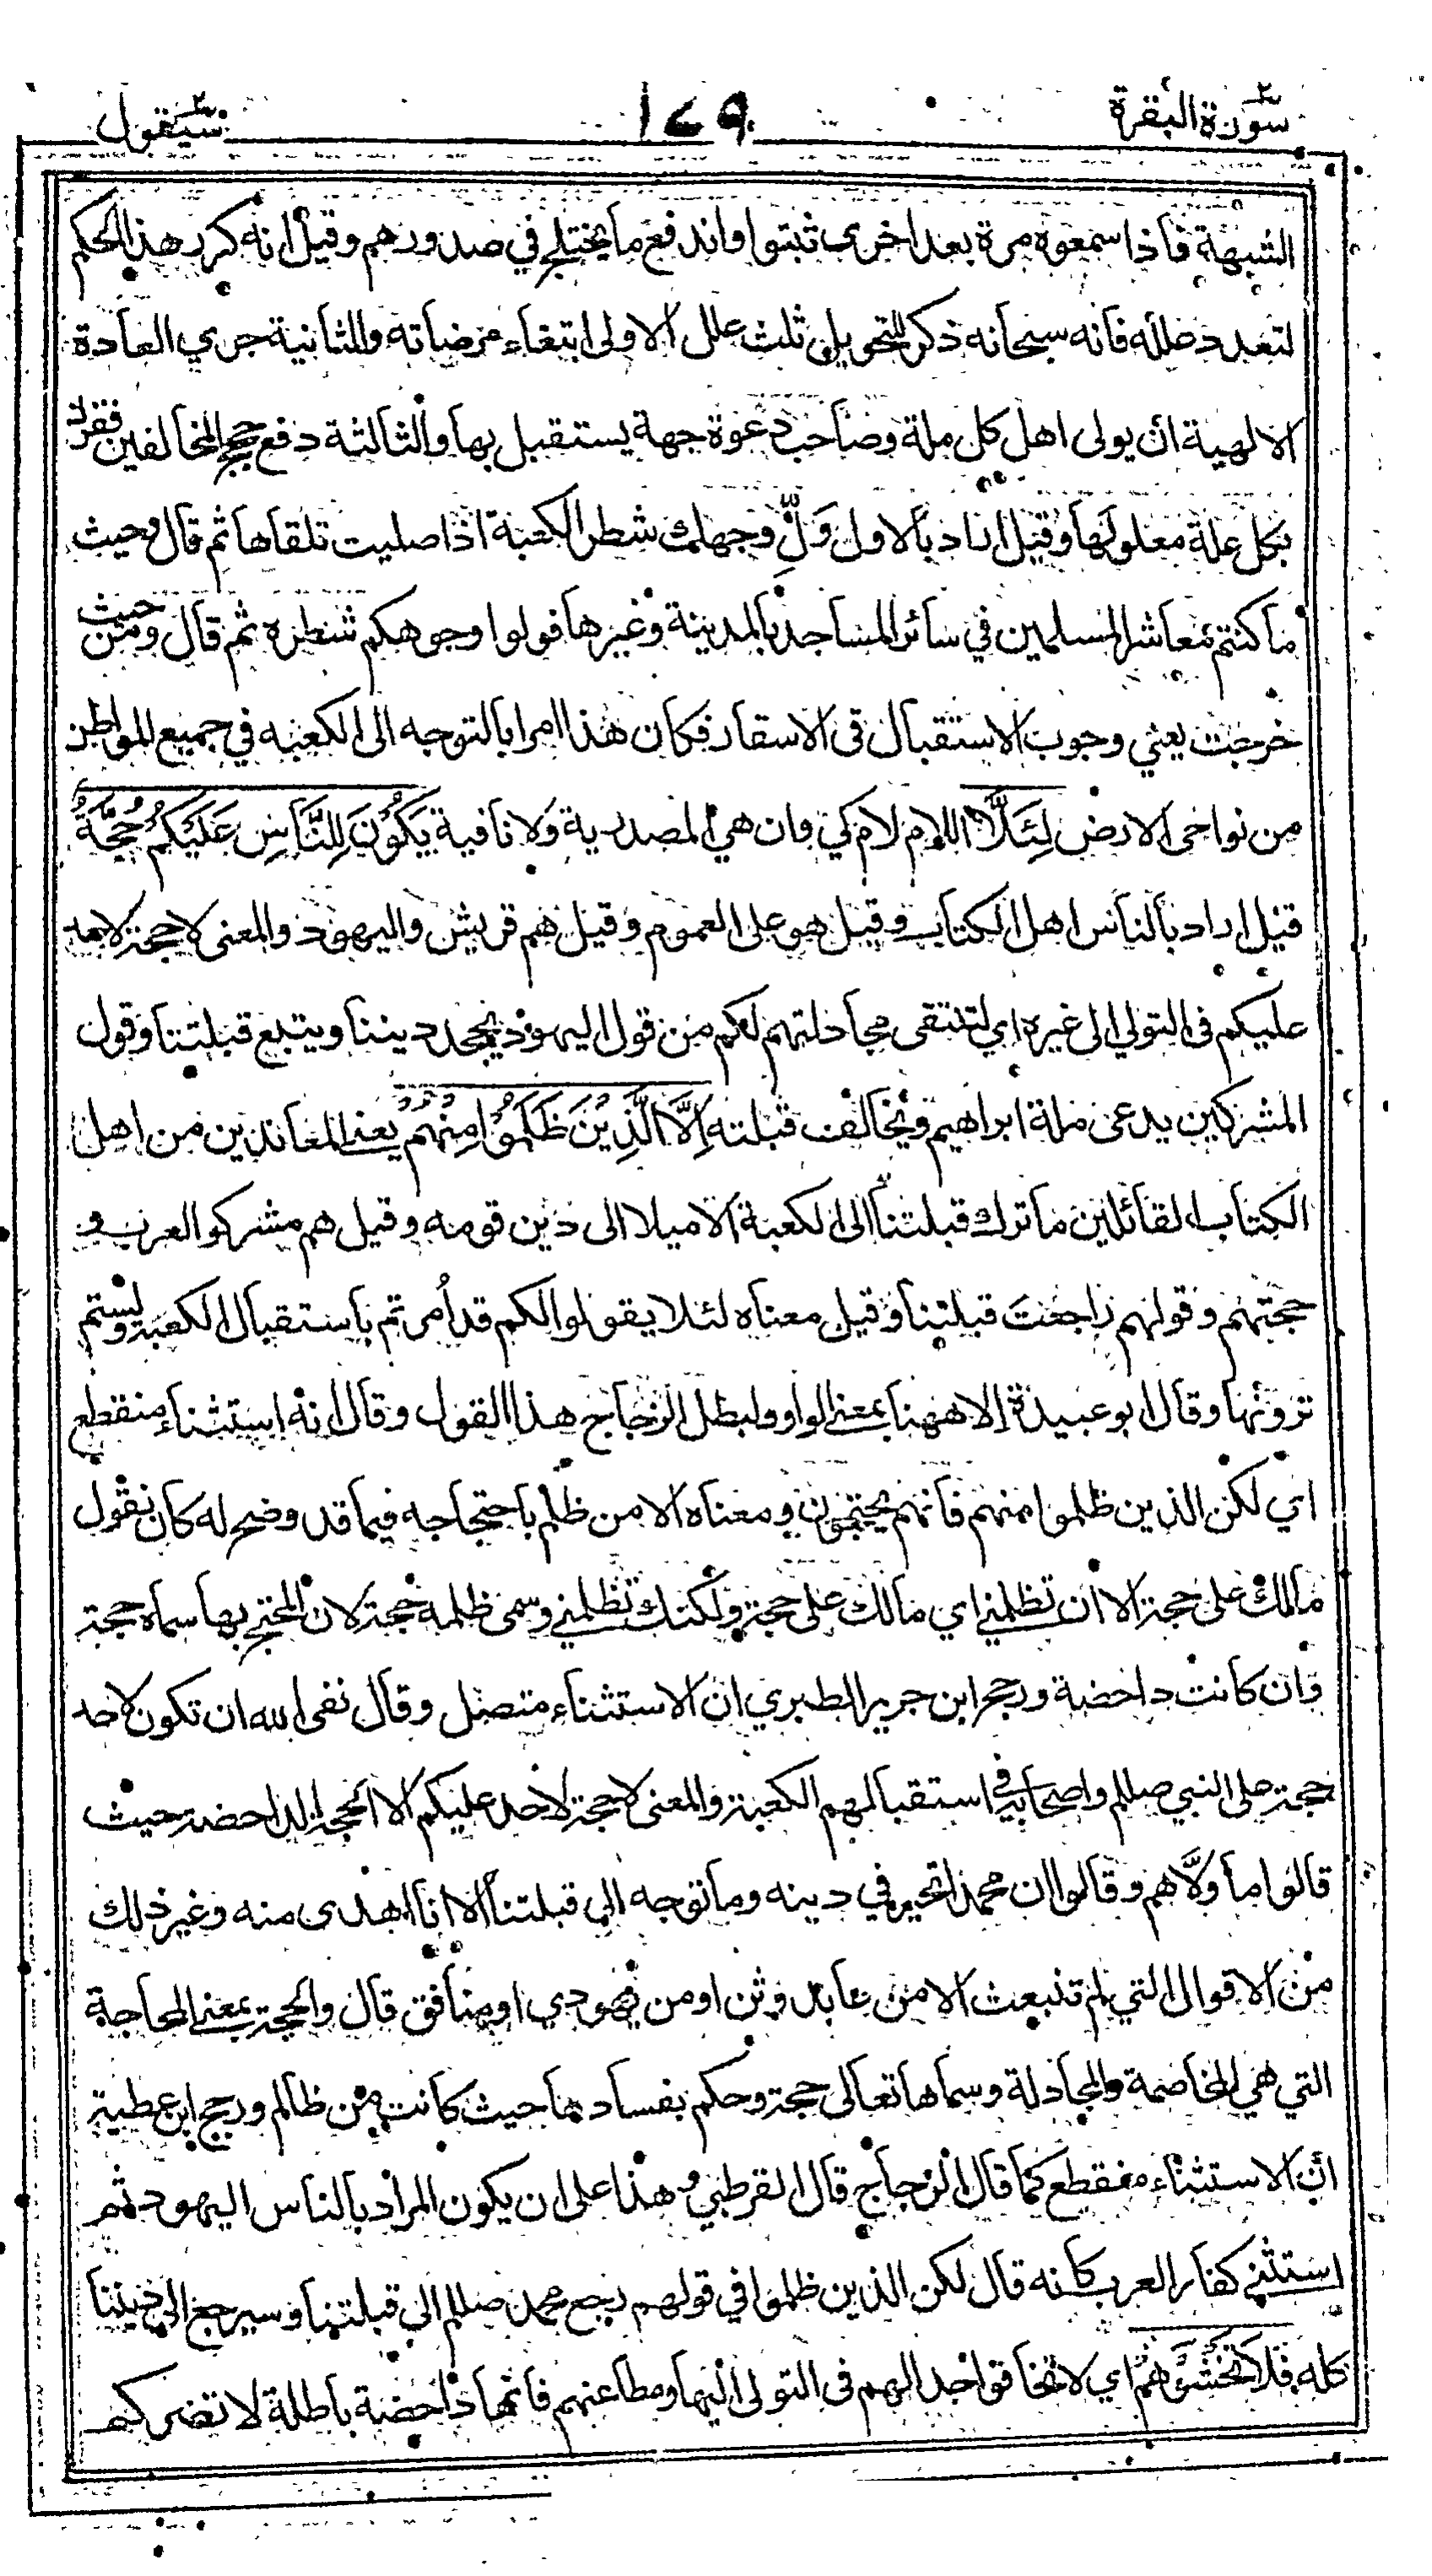 سورة البقرة ٢ ١٧٩ سيقول ٢
الشبهة فاذا سمعوه مرة بعد اخرى ثبتوا واندفع ما يختلج في صدورهم وقيل انه كرر هذا الحكم
لتعدد علله فانه سبحانه ذكر للتحويل ثلث علل الاولى ابتغاء مرضاته والثانية جري العادة
الالهية ان يولى اهل كل ملة وصاحب دعوة جهة يستقبل بها والثالثة دفع حجج المخالفين فقرن
بكل علة معلولها وقيل اراد بالاول وَلِّ وجهك شطر الكعبة اذا صليت تلقاها ثم قال وحيث
ما كنتم معاشر المسلمين في سائر المساجد بالمدينة وغيرها فولوا وجوهكم شطره ثم قال ومن حيث
خرجت يعني وجوب الاستقبال في الاسفار فكان هذا امرا بالتوجه الى الكعبة في جميع المواطن
من نواحى الارض لِئَلَّا اللام لام كي وان هي المصدرية ولا نافية يَكُوْنَ لِلنَّاسِ عَلَيْكُمْ حُجَّةٌ
قيل اراد بالناس اهل الكتاب وقيل هو على العموم وقيل هم قريش واليهود والمعنى لا حجة لاحد
عليكم في التولي الى غيره اي لتنتفى مجادلتهم لكم من قول اليهود يجحد ديننا ويتبع قبلتنا وقول
المشركين يدعى ملة ابراهيم ويخالف قبلته اِلَّا الَّذِيْنَ ظَلَمُوْا مِنْهُمْ يعنى المعاندين من اهل
الكتاب القائلين ما ترك قبلتنا الى الكعبة الا ميلا الى دين قومه وقيل هم مشركو العرب و
حجتهم وقولهم راجعت قبلتنا وقيل معناه لئلا يقولوا لكم قد اُمرتم باستقبال الكعبة ولستم
ترونها وقال ابو عبيدة الا ههنا بمعنى الواو وابطل الزجاج هذا القول وقال انه استثناء منقطع
اي لكن الذين ظلموا منهم فانهم يحتجون ومعناه الا من ظلم باحتجاجه فيما قد وضح له كان نقول
مالك على حجة الا ان تظلمني اي مالك على حجة ولكنك تظلمني وسمى ظلمه حجة لان المحتج بها سماه حجة
وان كانت داحضة ورجح ابن جرير الطبري ان الاستثناء متصل وقال نفى الله ان تكون لاحد
حجة على النبي صللم واصحابه في استقبالهم الكعبة والمعنى لا حجة لاحد عليكم الا الحجة الداحضة حيث
قالوا ما ولَّاهم وقالوا ان محمدا تحير في دينه وما توجه الى قبلتنا الا انا اهدى منه وغير ذلك
من الاقوال التي لم تنبعث الا من عابد وثن او من يهودي او منافق قال والحجة بمعنى المحاجة
التي هي المخاصمة والمجادلة وسماها تعالى حجة وحكم بفسادها حيث كانت من ظالم ورجح ابن عطية
ان الاستثناء منقطع كما قال الزجاج قال القرطبي وهذا على ان يكون المراد بالناس اليهود ثم
استثنى كفار العرب كانه قال لكن الذين ظلموا في قولهم رجع محمد صللم الى قبلتنا وسيرجع الى ديننا
كله فَلَا تَخْشَوْهُمْ اي لا تخافوا جدالهم في التولى اليها ومطاعنهم فانها داحضة باطلة لا تضركم